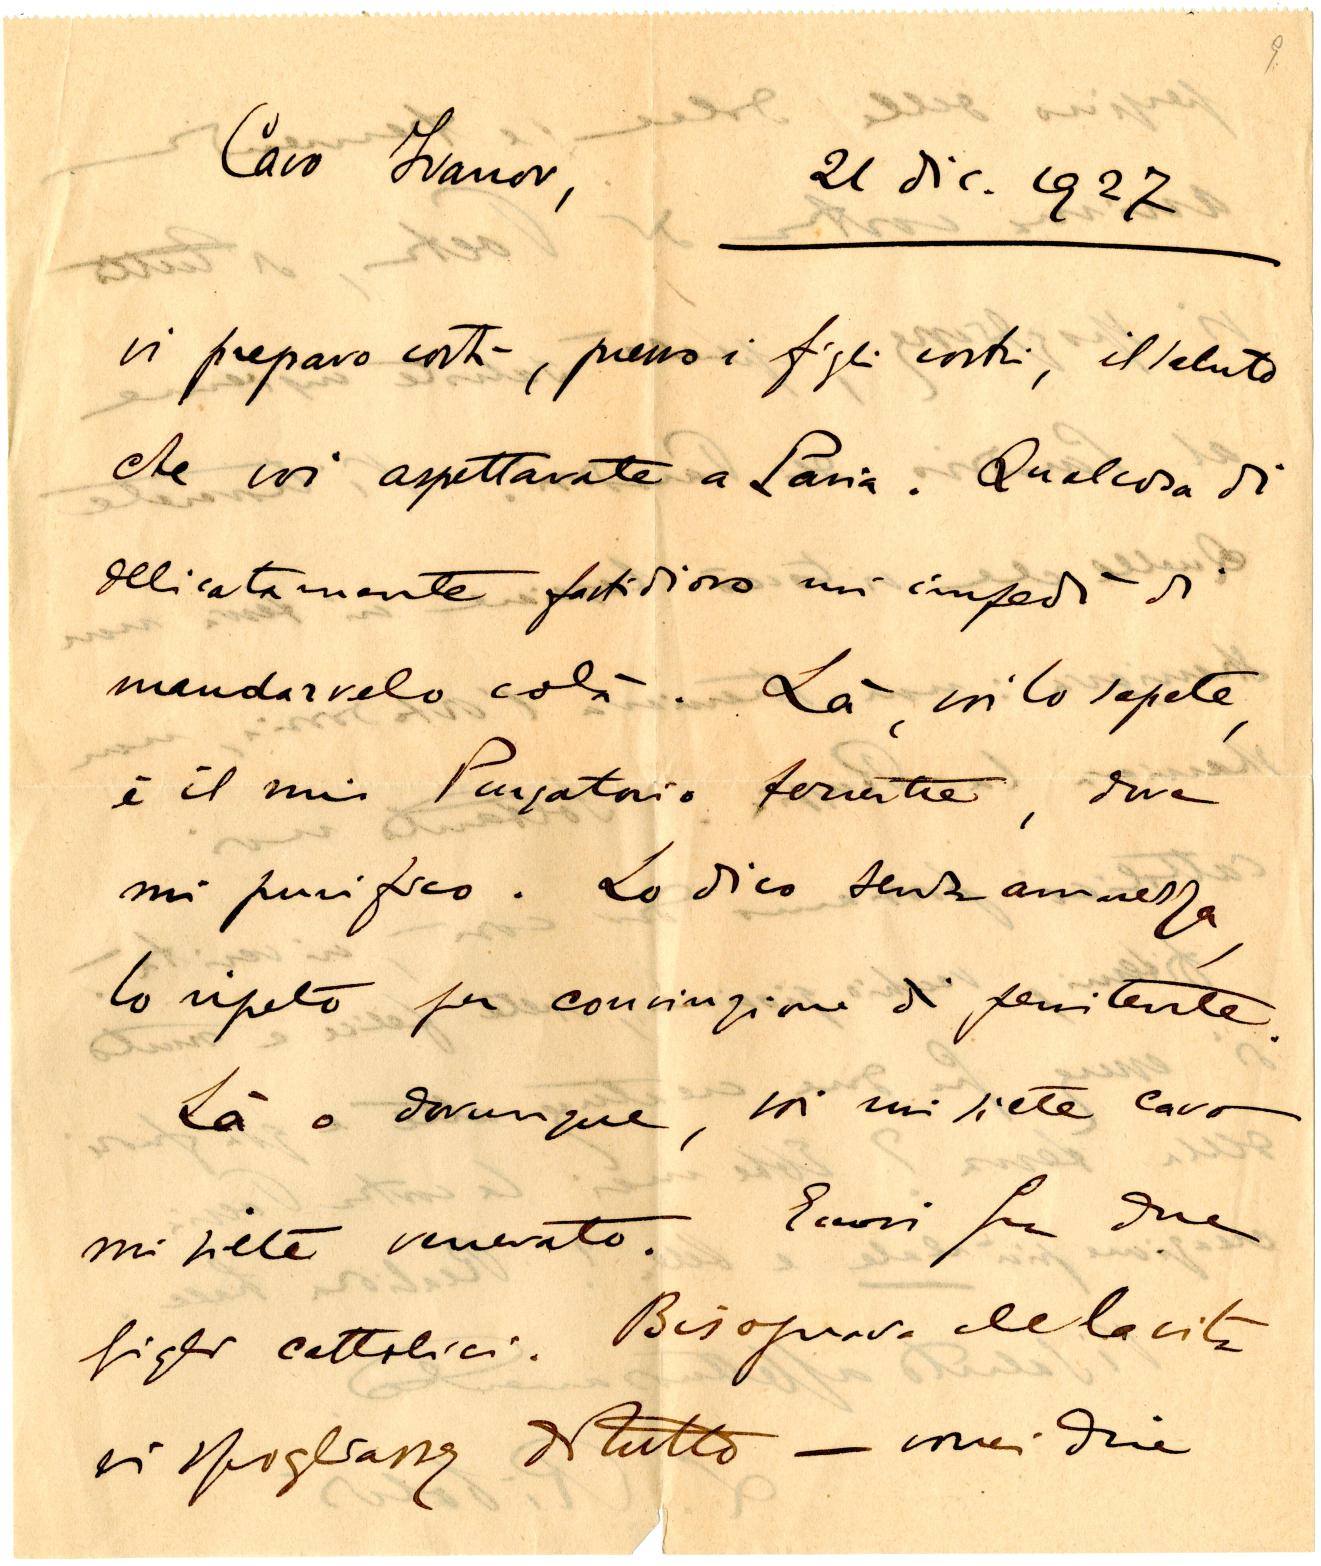 9
Caro Ivanov,
21 dic. 1927
vi preparo costì, presso i figli vostri, il saluto
che voi aspettavate a Pavia. Qualcosa di
delicatamente fastidioso mi impedì di
mandarvelo colà. Là, voi lo sapete,
è il mio Purgatorio terrestre, dove
mi purifico. Lo dico senza amarezza,
lo ripeto per convinzione di penitente.
Là o dovunque, voi mi siete caro
mi siete venerato. Eccovi fra due
figli cattolici. Bisognava che la vita
vi spogliasse di tutto — vorrei dire